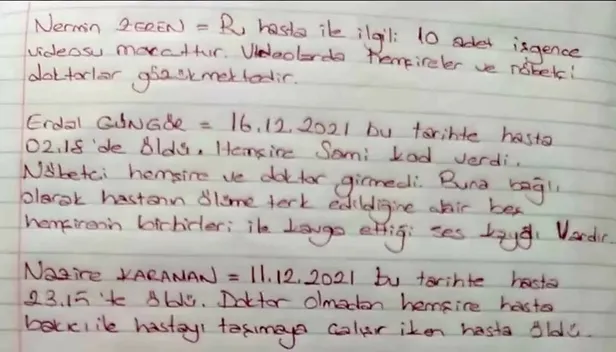 Nermin ZEREN = Bu hasta ile ilgili 10 adet işgence
videosu mevcuttur. Videolarda hemşireler ve nöbetçi
doktorlar gözükmektedir.
Erdal GÜNGÖR = 16.12.2021 bu tarihte hasta
02.18'de öldü. Hemşire Sami kod verdi.
Nöbetci hemşire ve doktor girmedi. Buna bağlı
olarak hastanın ölüme terk edildiğine dair beş
hemşirenin birbirleri ile kavga ettiği ses kaydı Vardır
Nazire KARANAN = 11.12.2021 bu tarihte hasta
23.15'te öldü. Doktor olmadan hemşire hasta
bakıcı ile hastayı taşımaya çalışır iken hasta öldü.